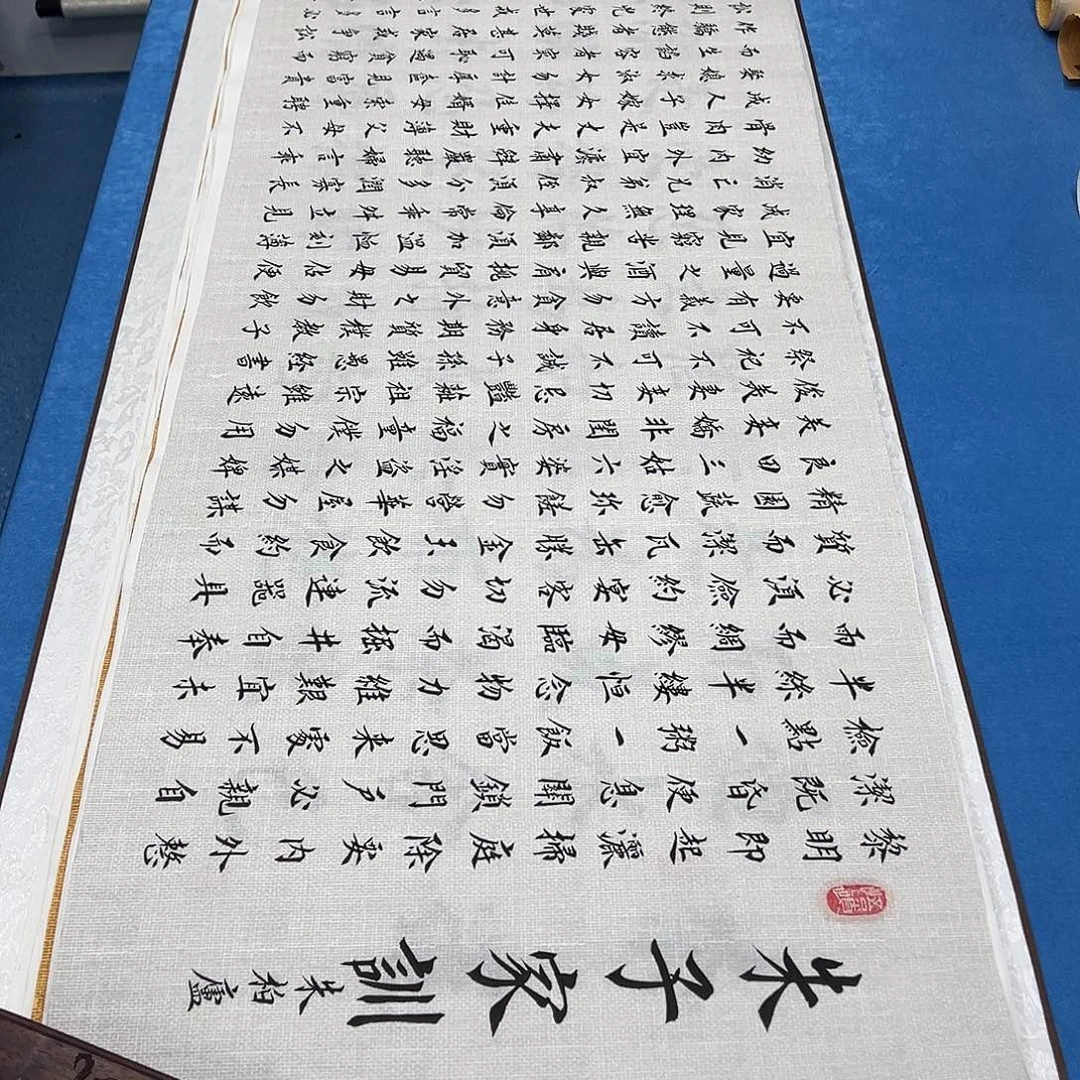 朱子家訓 朱柏廬
黎明即起灑掃庭除要內外整
潔既昏便息關鎖門戶必親自
檢點一粥一飯當思来處不易
半絲半縷恒念物力維艱宜未
雨而綢繆毋臨渴而掘井自奉
必須儉約宴客切勿流連器具
質而潔瓦缶勝金玉飲食約而
精園蔬愈珍饈勿營華屋勿謀
良田三姑六婆實淫盜之媒婢
美妾嬌非閨房之福童僕勿用
俊美妻妾切忌豔粧祖宗雖遠
祭祀不可不誠子孫雖愚經書
不可不讀居身務期質樸教子
要有義方勿貪意外之財勿飲
過量之酒與肩挑貿易毋佔便
宜見窮苦親鄰須加溫恤刻薄
成家理無久享倫常乖舛立見
消亡兄弟叔侄須分多潤寡長
幼內外宜法肅辭嚴聽婦言乖
骨肉豈是丈夫重財薄父母不
成人子嫁女擇佳婿毋索重聘
娶媳求淑女勿計厚奩見富貴
而生諂容者最可恥遇貧窮而
作驕態者賤莫甚居家戒爭訟
訟則終凶處世戒多言言多必